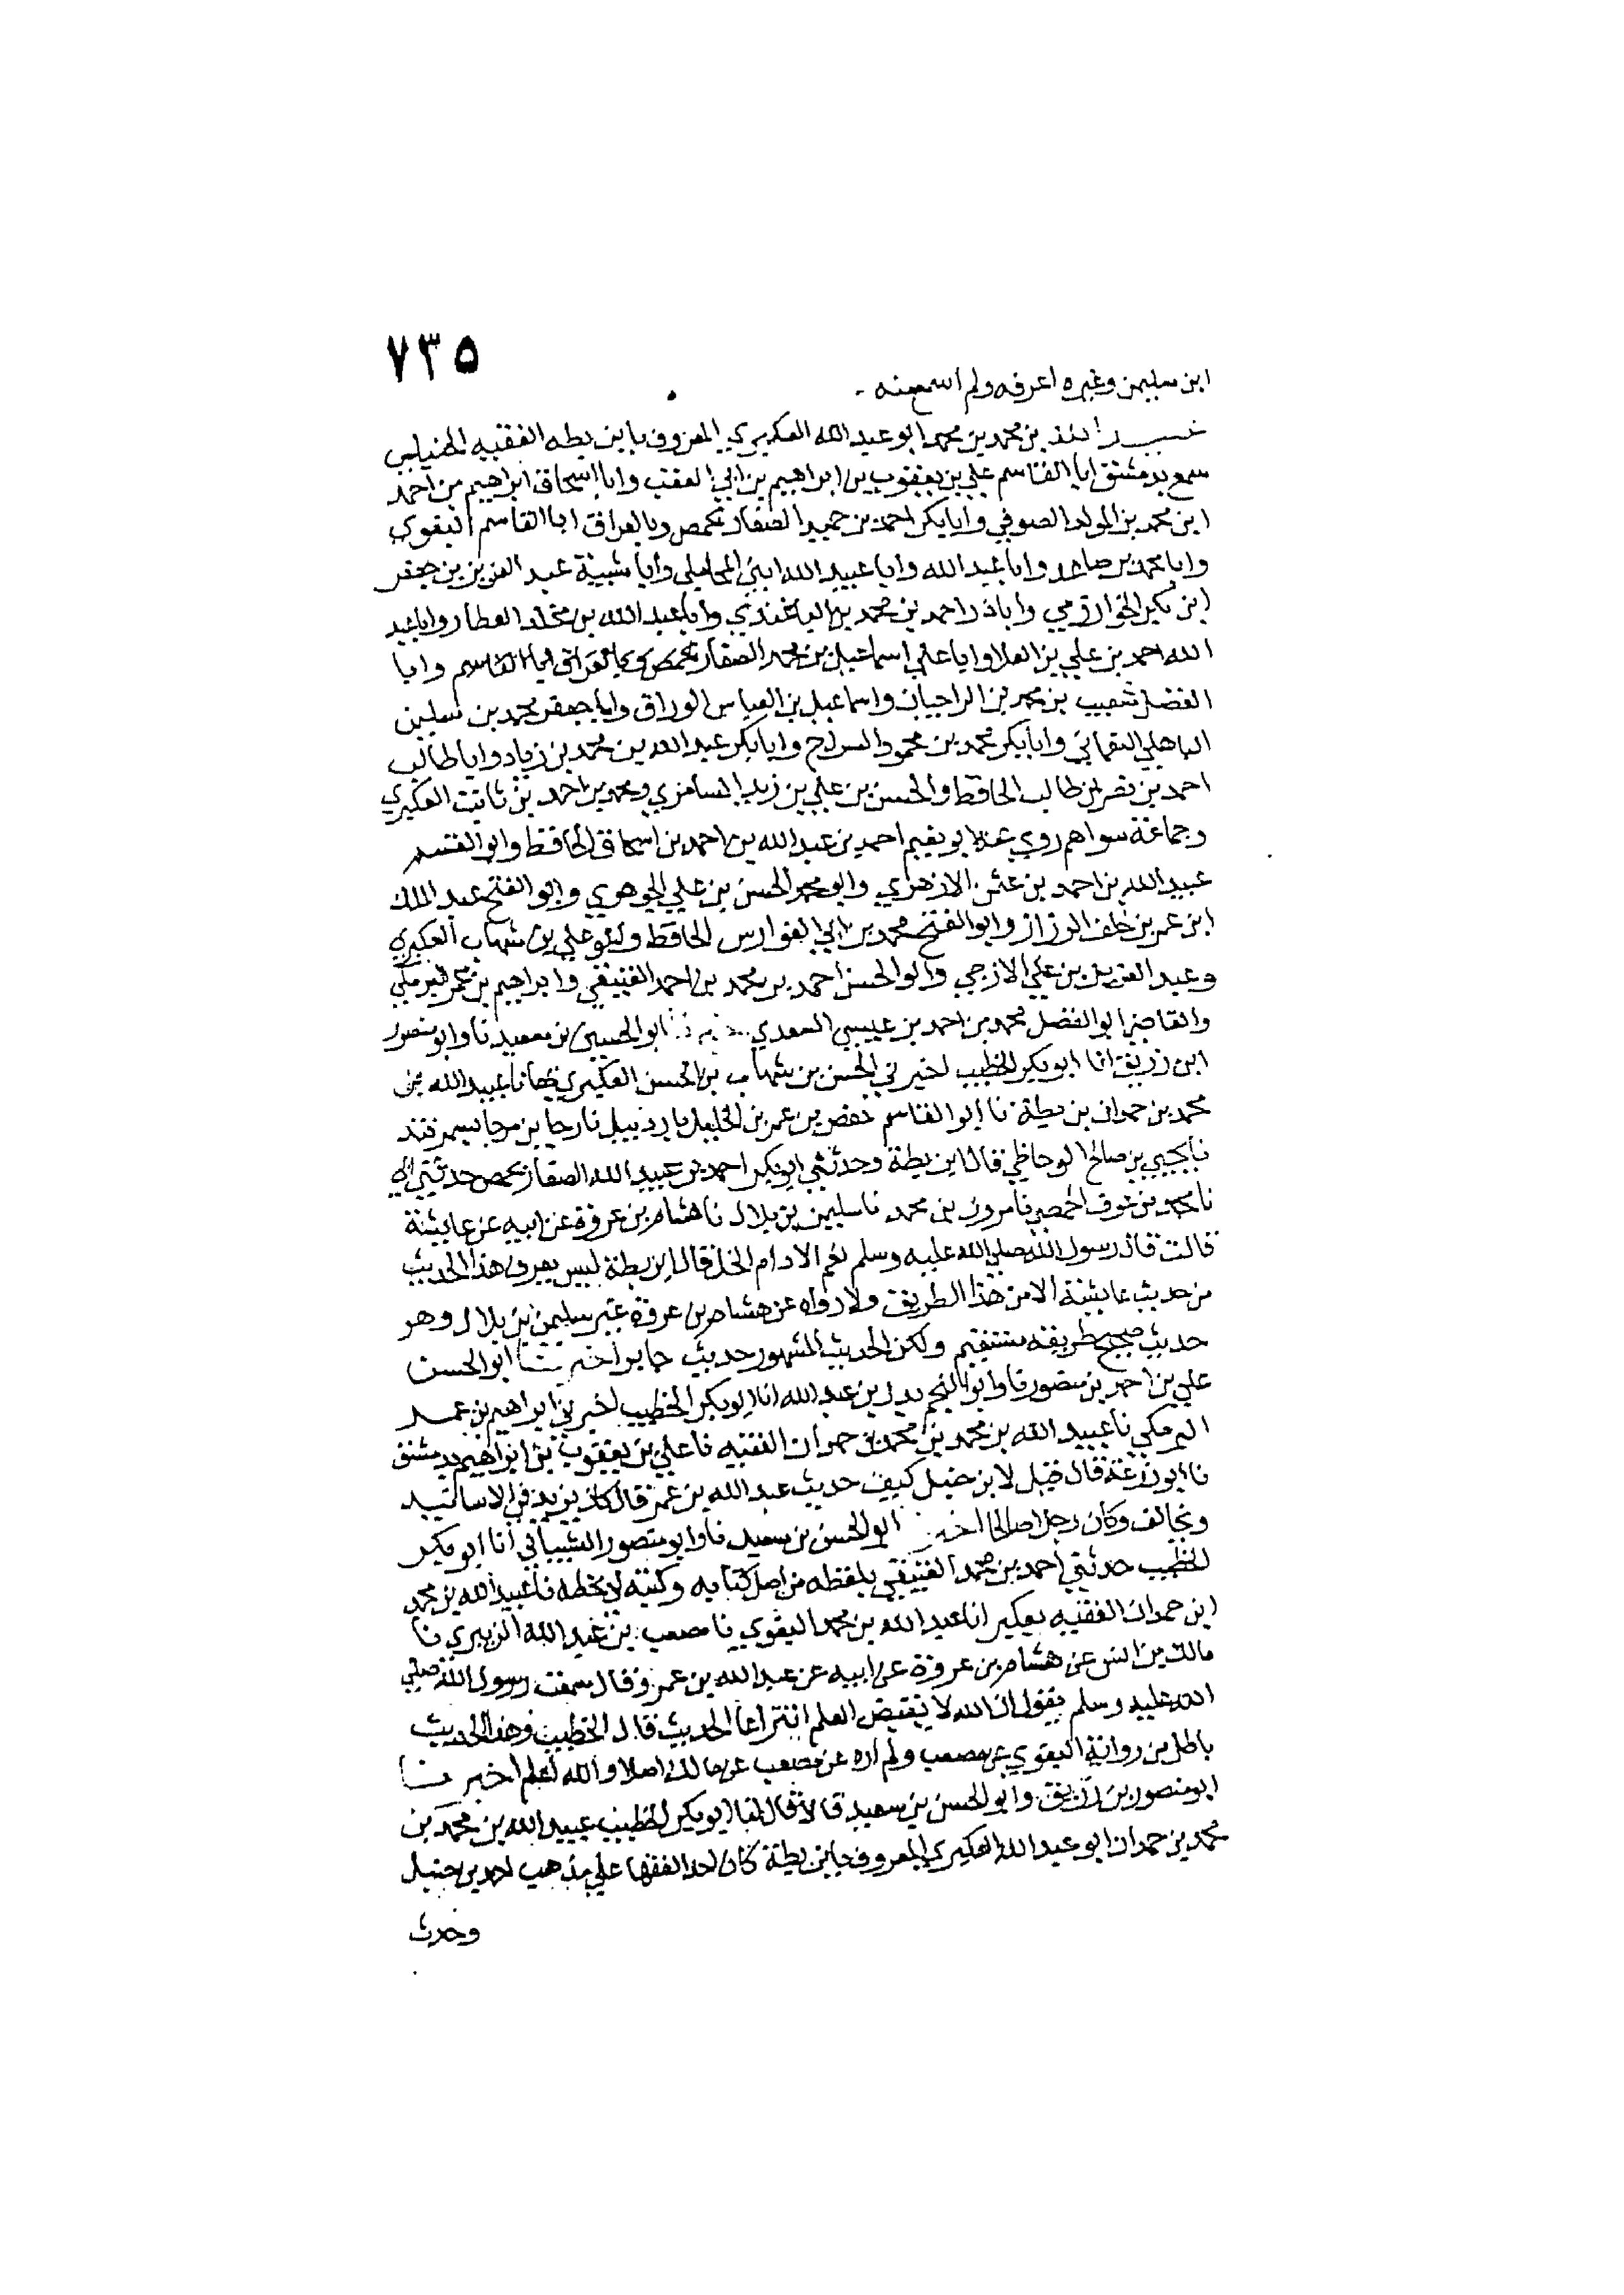 ٧٣٥
ابن سليمن وغيره اعرفه ولم اسمع منه
عبيد الله بن محمد بن محمد ابو عبد الله العكبري المعروف بابن بطه الفقيه الحنبلي
سمع بدمشق ابا القاسم علي بن يعقوب بن ابراهيم بن ابي العقب وابا اسحاق ابراهيم بن احمد
ابن محمد بن المولد الصوفي وابا بكر احمد بن حميد الصفار بحمص وبالعراق ابا القاسم البغوي
وابا محمد بن صاعد وابا عبد الله وابا عبيد الله ابني المحاملي وابا شيبة عبد العزيز بن جعفر
ابن بكر الخوارزمي وابا ذر احمد بن محمد بن الباغندي وابا عبد الله بن مخلد العطار وابا عبد
الله احمد بن علي بن العلا وابا علي اسماعيل بن محمد الصفار بحمص وبالعراق ابا القاسم وابا
الفضل شعيب بن محمد بن الراجيان واسماعيل بن العباس الوراق وابا جعفر محمد بن سليمن
الباهلي النعماني وابا بكر محمد بن محمود السراج وابا بكر عبد الله بن محمد بن زياد وابا طالب
احمد بن نصر بن طالب الحافظ والحسن بن علي بن زيد السامري ومحمد بن احمد بن ثابت العكبري
وجماعة سواهم روي عنه ابو نعيم احمد بن عبد الله بن احمد بن اسحاق الحافظ وابو القسم
عبيد الله بن احمد بن عثمن الازهري وابو محمد الحسن بن علي الجوهري وابو الفتح عبد الملك
ابن عمر بن خلف الرزاز وابو الفتح محمد بن ابي الفوارس الحافظ وابو علي بن شهاب العكبري
وعبد العزيز بن علي الازجي وابو الحسن احمد بن محمد بن احمد العتيقي وابراهيم بن عمر البرمكي
والقاضي ابو الفضل محمد بن احمد بن عيسي السعدي ابو الحسين بن سعيد نا وابو منصور
ابن زريق انا ابو بكر الخطيب اخبرني الحسن بن شهاب بن الحسن العكبري بها نا عبيد الله بن
محمد بن حمدان بن بطة نا ابو القاسم حفص بن عمر بن الخليل باردبيل نا رجا بن مرجا بسمرقند
نا يحيي بن صالح الوحاظي قال ابن بطة وحدثني ابو بكر احمد بن عبيد الله الصفار بحمص حدثني ابي
نا محمد بن عوف الحمصي نا مروان بن محمد نا سليمن بن بلال نا هشام بن عروة عن ابيه عن عايشة
قالت قال رسول الله صلي الله عليه وسلم نعم الادام الخل قال ابن بطة ليس يعرف هذا الحديث
من حديث عايشة الا من هذا الطريق ولا رواه عن هشام بن عروة غير سليمن بن بلال وهو
حديث صحيح طريقه مستقيم ولكن الحديث المشهور حديث جابر اخبرنا ابو الحسن
علي بن احمد بن منصور نا وابو النجم بدر بن عبد الله انا ابو بكر الخطيب اخبرني ابراهيم بن عمر
البرمكي نا عبيد الله بن محمد بن محمد بن حمدان الفقيه نا علي بن يعقوب بن ابراهيم بدمشق
نا ابو زرعة قال قيل لابن حنبل كيف حديث عبد الله بن عمر قال كان يزيد في الاسانيد
ويخالف وكان رجل اصالحا اخبرنا ابو الحسن بن سعيد نا وابو منصور الشيباني انا ابو بكر
الخطيب حدثني احمد بن محمد العتيقي بلفظه من اصل كتابه وكتبته لي بخطه نا عبيد الله بن محمد
ابن حمدان الفقيه بعكبر انا عبد الله بن محمد البغوي نا مصعب بن عبد الله الزبيري نا
مالك بن انس عن هشام بن عروة عن ابيه عن عبد الله بن عمرو قال سمعت رسول الله صلي
الله عليه وسلم يقول ان الله لا يقبض العلم انتزاعا الحديث قال الخطيب وهذا الحديث
باطل من رواية البغوي عن مصعب ولم اره عن مصعب عن مالك اصلا والله اعلم اخبرنا
ابو منصور بن زريق وابو الحسن بن سعيد قالا قال لنا ابو بكر الخطيب عبيد الله بن محمد بن
محمد بن حمدان ابو عبد الله العكبري المعروف بابن بطة كان احد الفقها علي مذهب احمد بن حنبل
وحدث